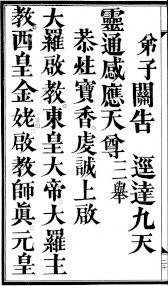 弟子關告　逕達九天
靈通感應天尊二舉
恭炷寶香虔誠上啟
大羅啟教東皇大帝大羅主
教西皇金姥啟教師真元皇